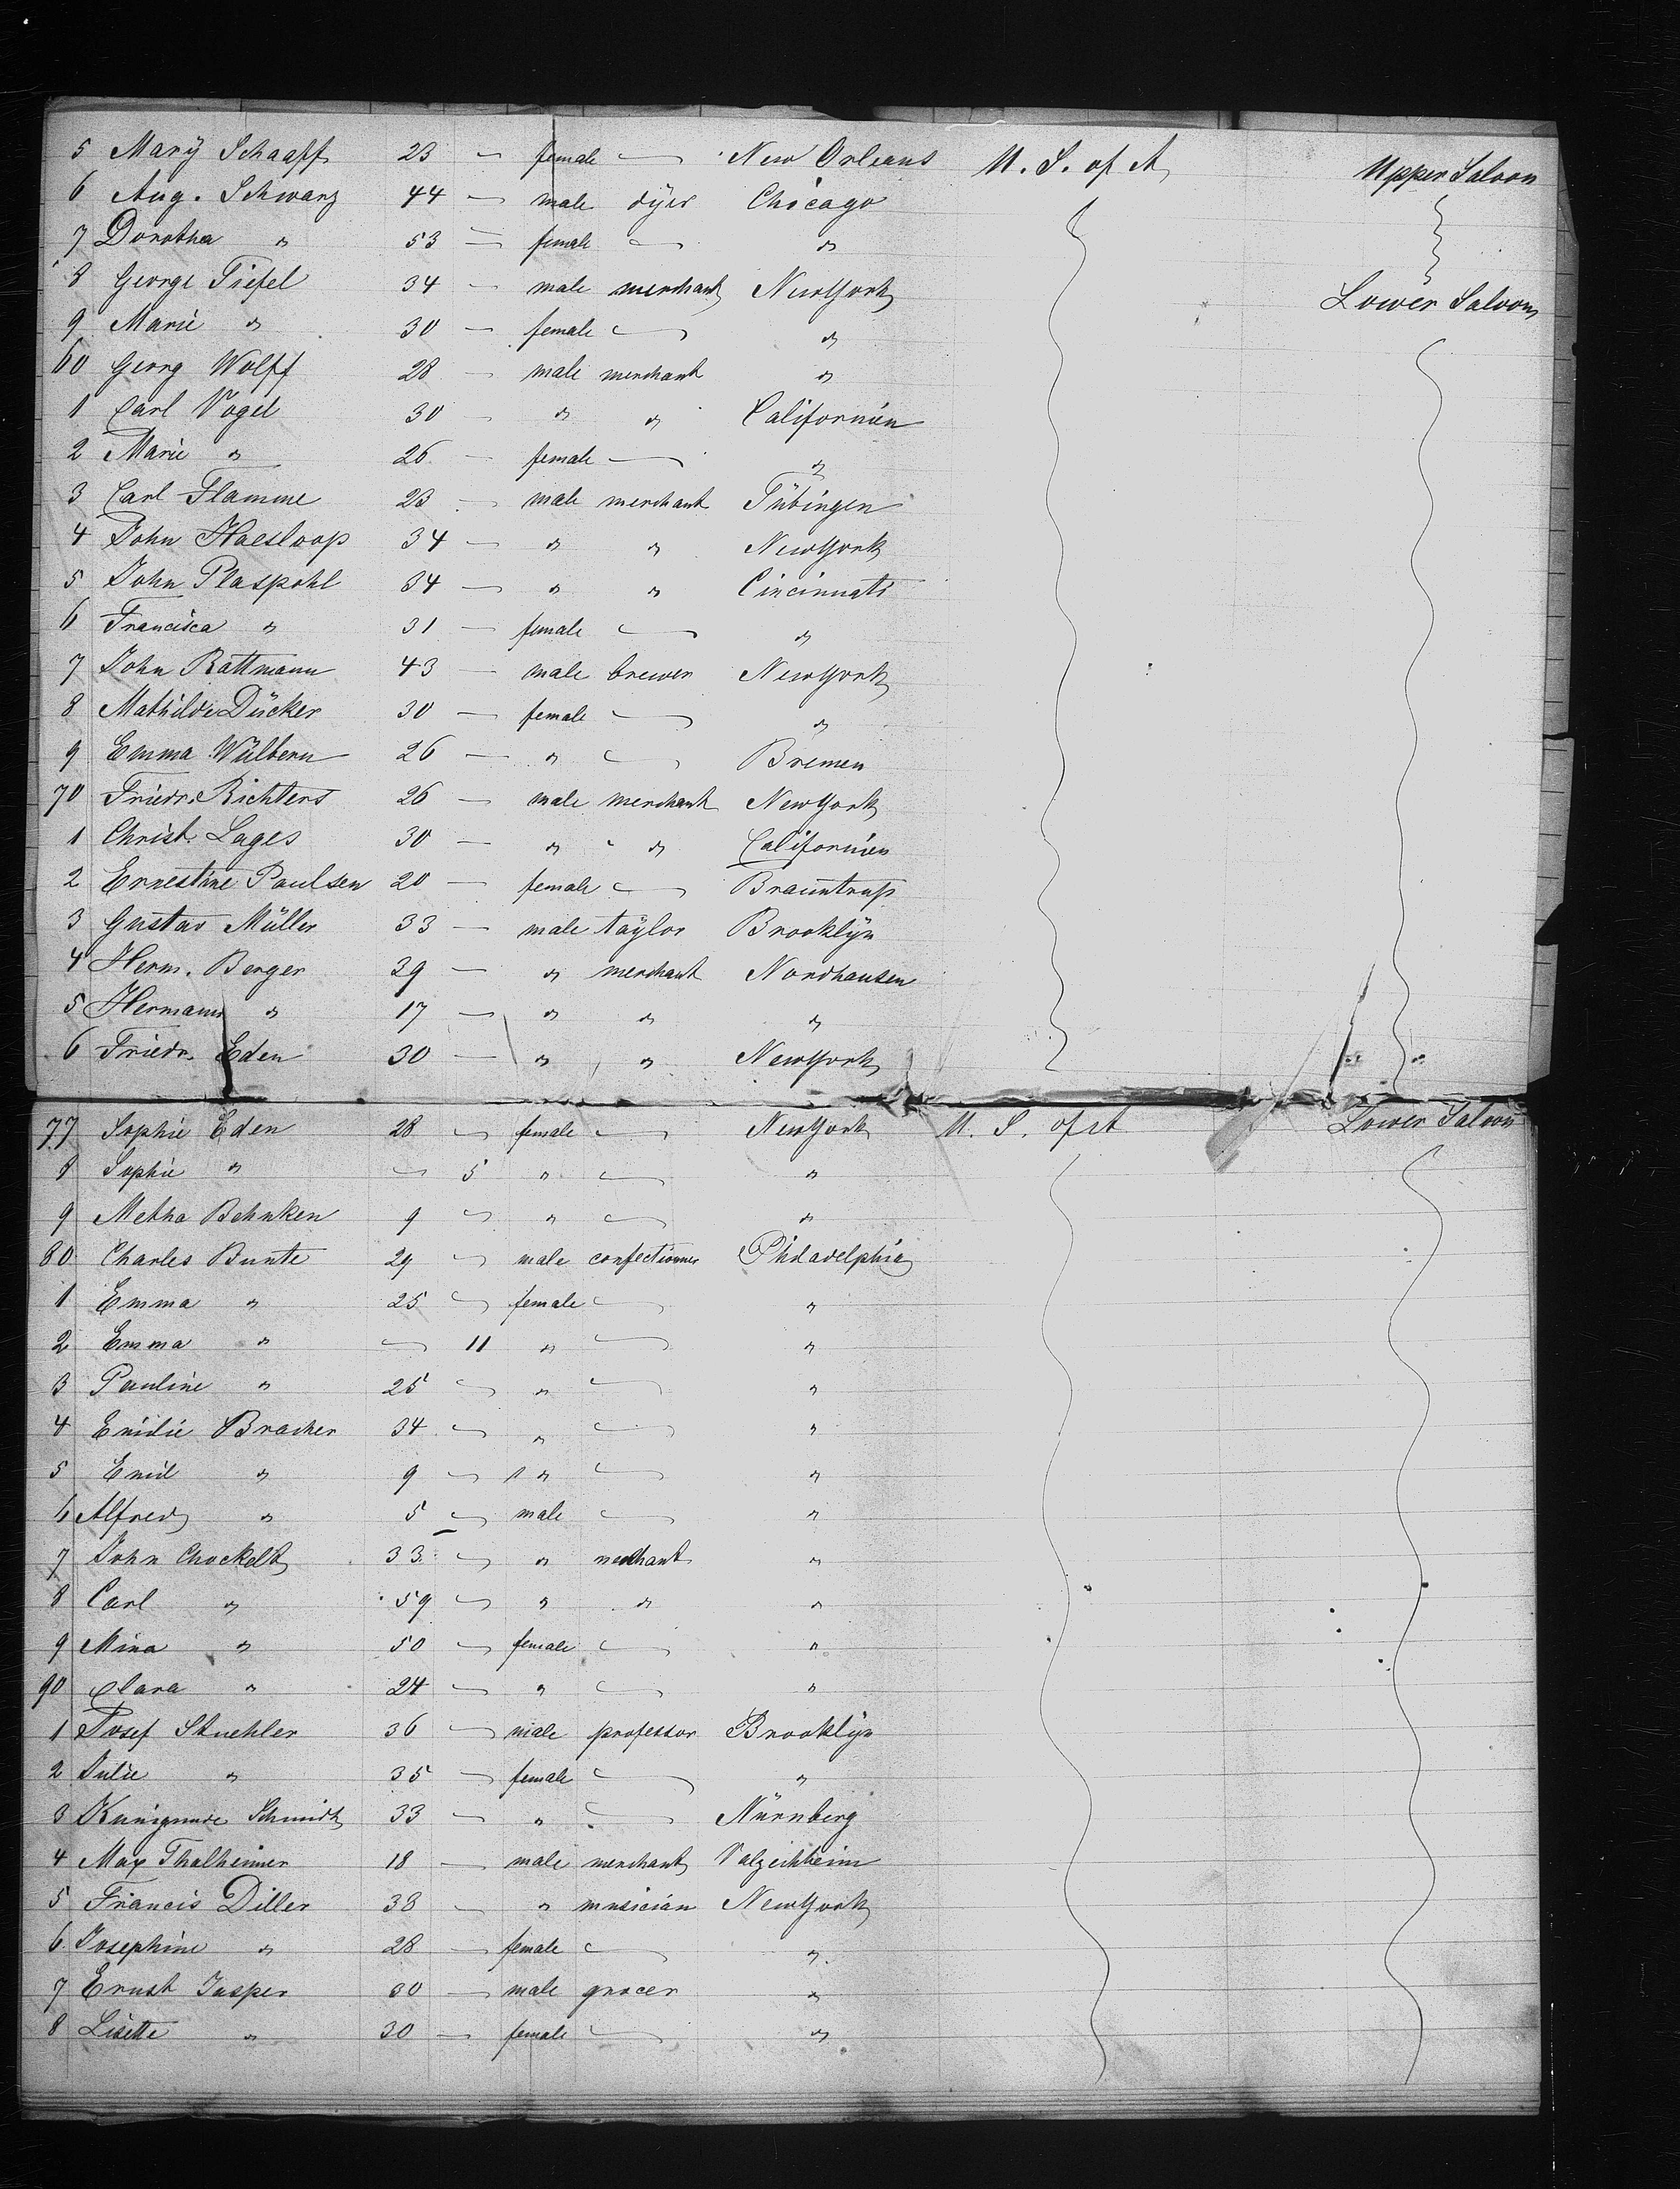 5 Marÿ Schaaff 23 — female — New Orleans U. S. of A. Upper Saloon
6 Aug. Schwarz 44 — male dÿer Chicago
7 Dorothea " 53 — female — "
8 George Tiefel 34 — male merchant NewYork Lower Saloon
9 Marie " 30 — female — "
60 Georg Wolff 28 — male merchant "
1 Carl Vogel 30 — " " Californien
2 Marie " 26 — female — "
3 Carl Flamme 23 — male merchant Tübingen
4 John Haesloop 34 — " " NewYork
5 John Plaspohl 34 — " " Cincinnati
6 Francisca " 31 — female — "
7 John Rattmann 43 — male brewer NewYork
8 Mathilde Dücker 30 — female — "
9 Emma Wülbern 26 — " — Bremen
70 Friedr. Richters 26 — male merchant NewYork
1 Christ. Lages 30 — " " Californien
2 Ernestine Paulsen 20 — female — Brauntrup
3 Gustav Müller 33 — male taÿlor Brooklÿn
4 Herm. Berger 39 — " merchant Nordhausen
5 Hermann " 17 — " " "
6 Friedr. Eden 30 — " " NewYork
77 Sophie Eden 28 — female — NewYork U. S. of A Lower Saloon
8 Sophie " — 5 " — "
9 Metha Behnken 9 — " — "
80 Charles Bunte 29 — male confectioner Philadelphia
1 Emma " 25 — female — "
2 Emma " — 11 " — "
3 Pauline " 25 — " — "
4 Emilie Bracher 34 — " — "
5 Emil " 9 — " — "
6 Alfred " 5 — male — "
7 John Chockelt 33 — " merchant "
8 Carl " 59 — " " "
9 Mina " 50 — female — "
90 Clara " 24 — " — "
1 Josef Stuehler 36 — male professor Brooklÿn
2 Julie " 35 — female — "
3 Kunigunde Schmidt 33 — " — Nürnberg
4 Max Thalheimer 18 — male merchant
5 Francis Diller 38 — " musician NewYork
6 Josephine " 28 — female — "
7 Ernst Jasper 30 — male grocer "
8 Lisette " 30 — female — "